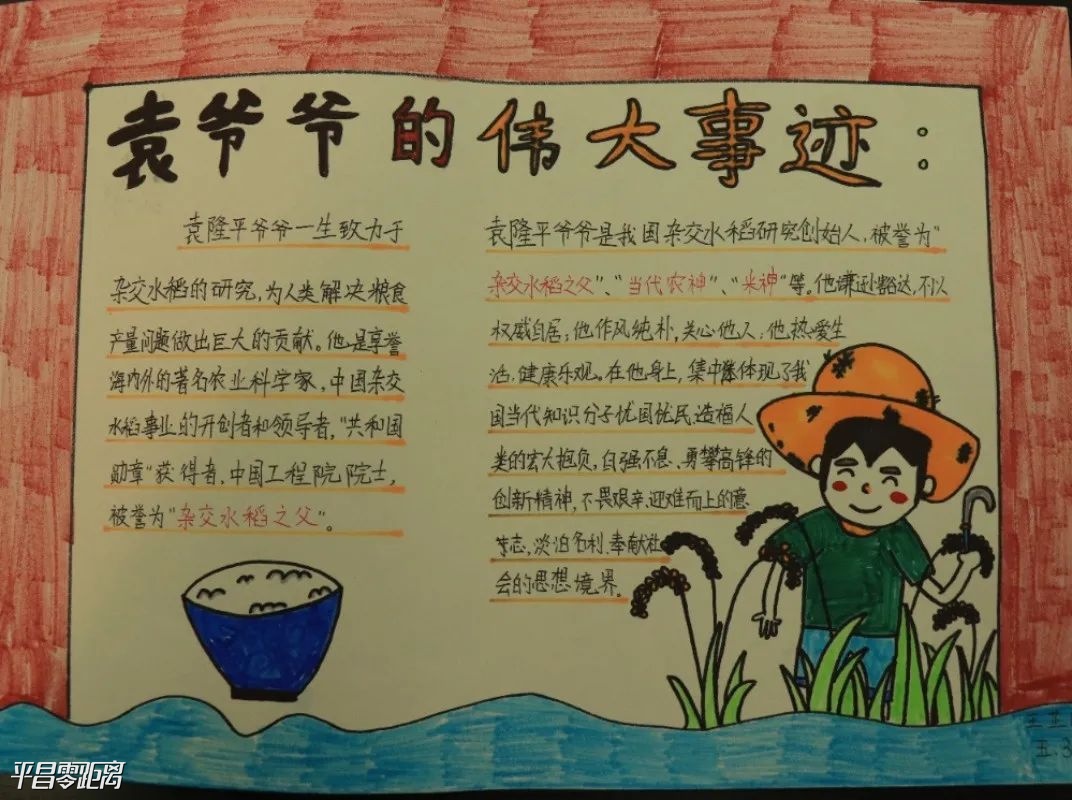 袁爷爷的伟大事迹：
袁隆平爷爷一生致力于
杂交水稻的研究,为人类解决粮食
产量问题做出巨大的贡献。他是享誉
海内外的著名农业科学家,中国杂交
水稻事业的开创者和领导者,"共和国
勋章"获得者,中国工程院院士,
被誉为"杂交水稻之父"。
袁隆平爷爷是我国杂交水稻研究创始人,被誉为"
杂交水稻之父"、"当代农神"、"米神"等。他谦逊豁达,不以
权威自居;他作风纯朴,关心他人;他热爱生
活,健康乐观。在他身上,集中体现了我
国当代知识分子忧国忧民、造福人
类的宏大抱负,自强不息、勇攀高锋的
创新精神,不畏艰辛、迎难而上的意
志,淡泊名利、奉献社
会的思想境界。
五.3
平昌零距离